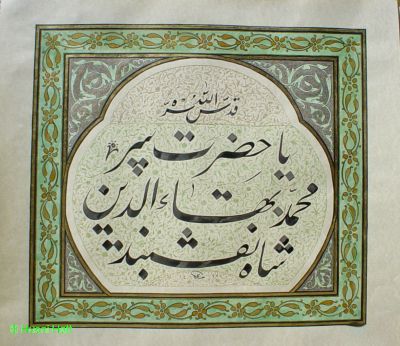 قدس الله سره
یا حضرت پیر
محمد بهاء الدین
شاه نقشبند